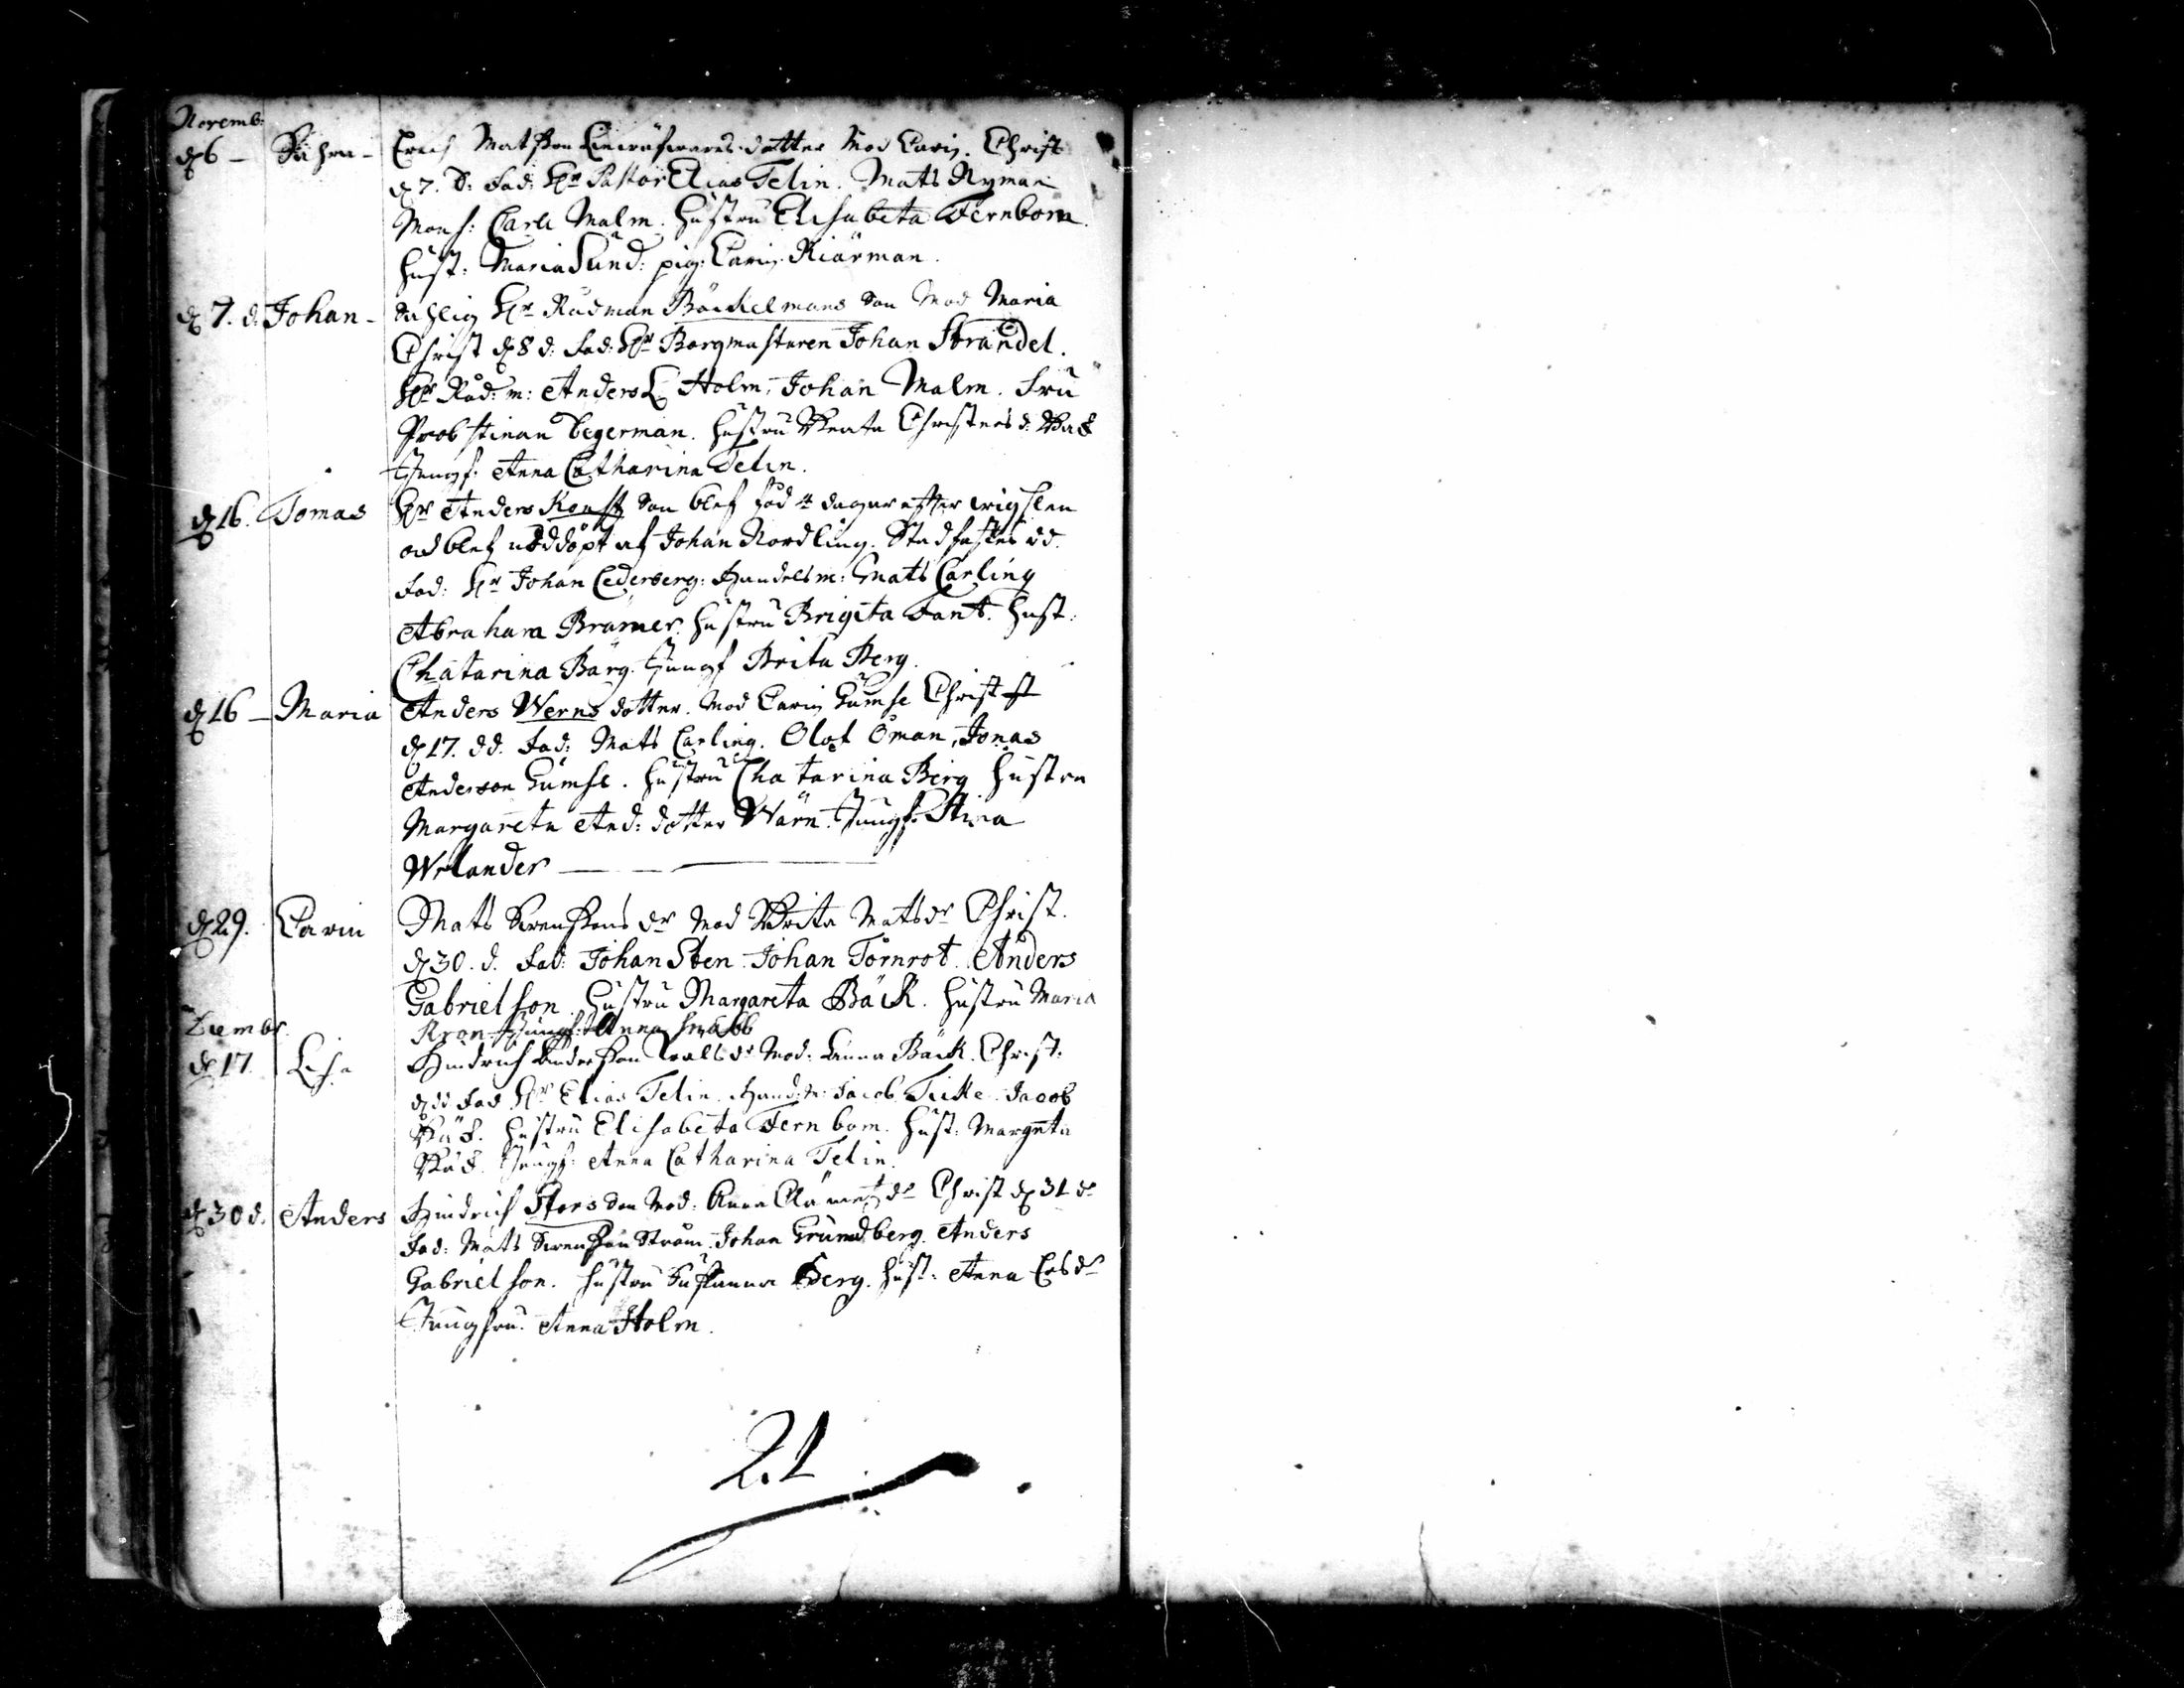 Novemb:
d 6 - Erich Matsson dotter Mod Carin. Christ
d 7. d: Fad: Hr Pastor Elias Telin. Mats Nyman
Mons: Carl Malm. Hustru Elisabeta Fernbom.
Hust: Maria Sund: pig: Carin Kiärman.
d 7. d. Johan - Sahlig Hr Rådman Böckelmans Son Mod Maria
Christ d 8 d: Fad: Hr Borgmästaren Johan Strandel.
Hr Råd: m: Anders E Holm, Johan Malm. Fru
Probstinnan Hustru Beata Christers d: Bäck
Jungf: Anna Catharina Telin.
d 16. Tomas Hr Anders Son blef föd 4 dagar efter
och blef nöddöpt af Johan Nordling. Stadfästes dd.
Fad: Hr Johan Cederberg: Handelsm: Mats Carling
Abraham Brämer. Hustru Brigita Fant. Hust:
Chatarina Barg. Jungf Brita Berg.
d 16 - Maria Anders Werns dotter. Mod Carin Gumse Christ
d 17. dd. Fad: Mats Carling. Olof Öman, Jonas
Anderson Gumse. Hustru Chatarina Berg Hustru
Margareta And: dotter Wärn. Jungf: Stina
Welander
d 29. Carin Mats Svenssons dr Mod Brita Matsdr Christ.
d 30. d. Fad: Johan Sten. Johan Törnrot. Anders
Gabrielson. Hustru Margareta Bäck. Hustru Maria
Kron. Jungf: Anna Snabb
Decembr.
d 17. Lisa Hindrich Andersson dr Mod: Anna Bäck. Christ:
d dd Fad Hr Elias Telin. Hand: m: Jacob Jacob
Bäck. Hustru Elisabeta Fernbom. Hust: Margreta
Bäck. Jungf: Anna Catharina Telin.
d 30 d. Anders Hindrich Stors Son Mod: Anna dr Christ d 31 d
Fad: Mats Svensson Ström. Johan Grundberg. Anders
Gabrielson. Hustru Susanna Berg. Hust: Anna dr
Jungfru Anna Holm.
21